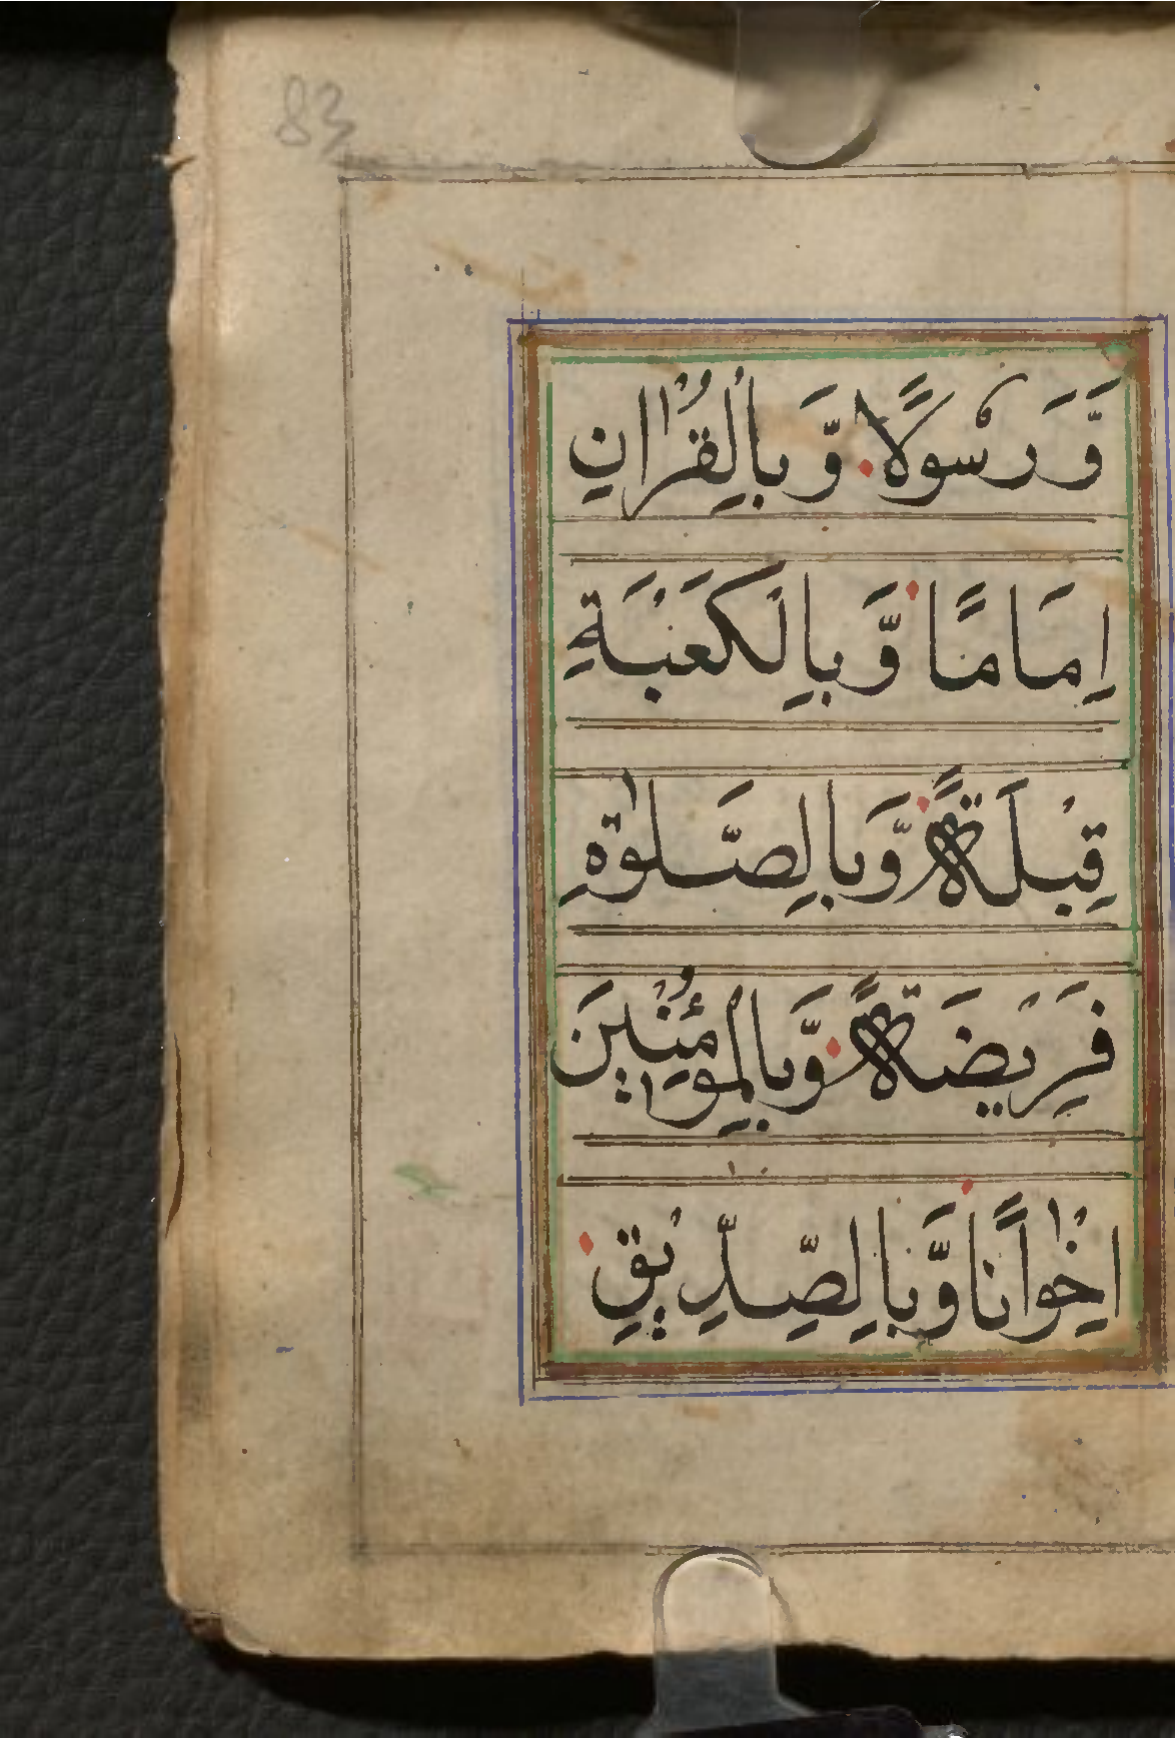 83
وَّ رَسُوْلًا وَّ بِالْقُرْاٰنِ
اِمَامًا وَّ بِالْكَعْبَةِ
قِبْلَةً وَّ بِالصَّلٰوةِ
فَرِيْضَةً وَّ بِالْمُوْمِنِيْنَ
اِخْوَانًا وَّ بِالصِّدِّيْقِ